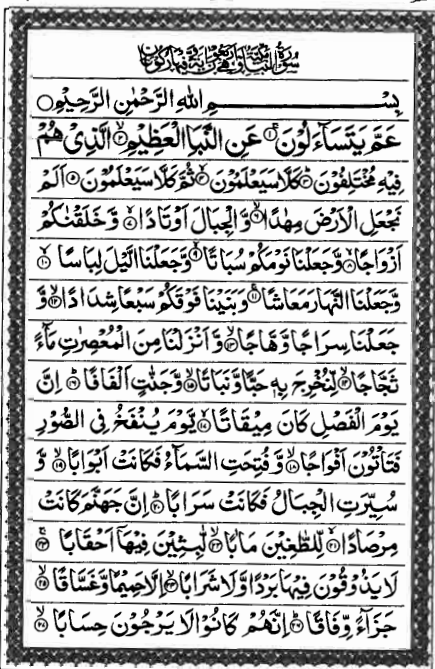 بِسْمِ اللهِ الرَّحْمٰنِ الرَّحِيْمِ
عَمَّ يَتَسَآءَلُوْنَ ۱ عَنِ النَّبَاِ الْعَظِيْمِ ۲ الَّذِىْ هُمْ
فِيْهِ مُخْتَلِفُوْنَ ۳ كَلَّا سَيَعْلَمُوْنَ ۴ ثُمَّ كَلَّا سَيَعْلَمُوْنَ ۵ اَلَمْ
نَجْعَلِ الْاَرْضَ مِهٰدًا ۶ وَّالْجِبَالَ اَوْتَادًا ۷ وَّخَلَقْنٰكُمْ
اَزْوَاجًا ۸ وَّجَعَلْنَا نَوْمَكُمْ سُبَاتًا ۹ وَّجَعَلْنَا الَّيْلَ لِبَاسًا ۱۰
وَّجَعَلْنَا النَّهَارَ مَعَاشًا ۱۱ وَّبَنَيْنَا فَوْقَكُمْ سَبْعًا شِدَادًا ۱۲ وَّ
جَعَلْنَا سِرَاجًا وَّهَّاجًا ۱۳ وَّاَنْزَلْنَا مِنَ الْمُعْصِرٰتِ مَآءً
ثَجَّاجًا ۱۴ لِّنُخْرِجَ بِهٖ حَبًّا وَّنَبَاتًا ۱۵ وَّجَنّٰتٍ اَلْفَافًا ۱۶ اِنَّ
يَوْمَ الْفَصْلِ كَانَ مِيْقَاتًا ۱۷ يَّوْمَ يُنْفَخُ فِى الصُّوْرِ
فَتَاْتُوْنَ اَفْوَاجًا ۱۸ وَّفُتِحَتِ السَّمَآءُ فَكَانَتْ اَبْوَابًا ۱۹ وَّ
سُيِّرَتِ الْجِبَالُ فَكَانَتْ سَرَابًا ۲۰ اِنَّ جَهَنَّمَ كَانَتْ
مِرْصَادًا ۲۱ لِّلطّٰغِيْنَ مَاٰبًا ۲۲ لّٰبِثِيْنَ فِيْهَآ اَحْقَابًا ۲۳
لَا يَذُوْقُوْنَ فِيْهَا بَرْدًا وَّلَا شَرَابًا ۲۴ اِلَّا حَمِيْمًا وَّغَسَّاقًا ۲۵
جَزَآءً وِّفَاقًا ۲۶ اِنَّهُمْ كَانُوْا لَا يَرْجُوْنَ حِسَابًا ۲۷